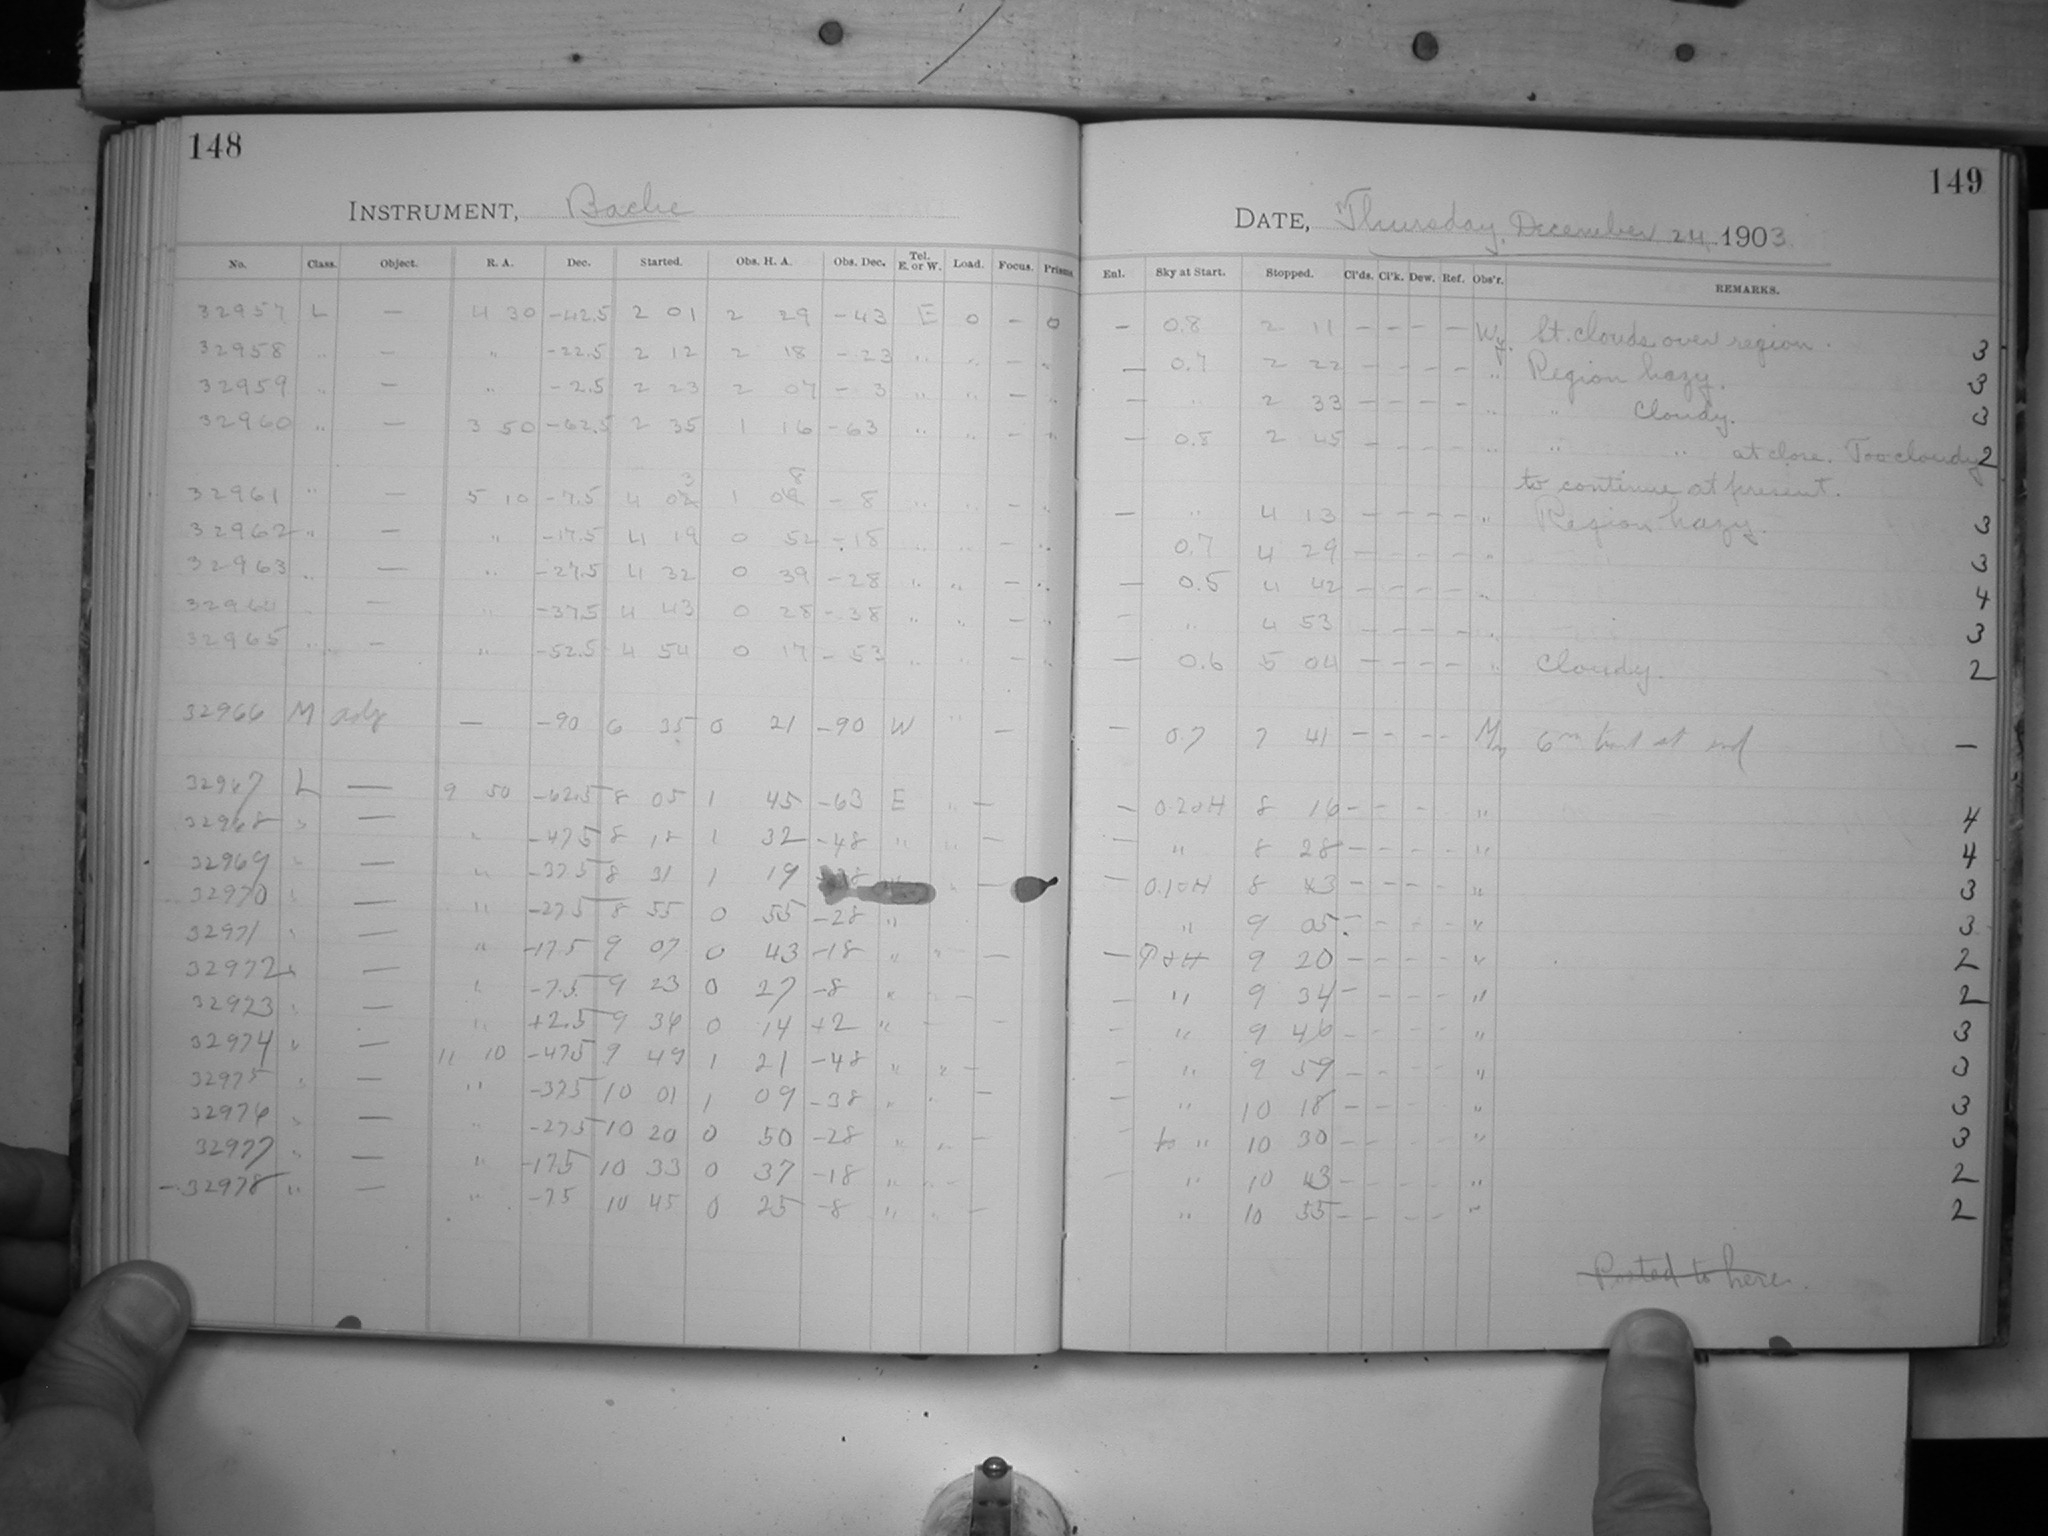 148
INSTRUMENT, Bache
No. Class. Object. R. A. Dec. Started. Obs. H. A. Obs. Dec. Tel. E. or W. Load. Focus. Prisms.
32957 L — 4 30 -42.5 2 01 2 29 -43 E 0 - 0
32958 " — " -22.5 2 12 2 18 -23 " " - "
32959 " — " -2.5 2 23 2 07 - 3 " " - "
32960 " — 3 50 -62.5 2 35 1 16 -63 " " - "
32961 " — 5 10 -7.5 4 03 1 08 - 8 " " - "
32962 " — " -17.5 4 19 0 52 -18 " " - "
32963 " — " -27.5 4 32 0 39 -28 " " - "
32964 " — " -37.5 4 43 0 28 -38 " " - "
32965 " — " -52.5 4 54 0 17 -53 " " - "
32966 M adj — -90 6 35 0 21 -90 W " -
32967 L — 9 50 -62.5 8 05 1 45 -63 E " -
32968 " — " -475 8 18 1 32 -48 " " -
32969 " — " -375 8 31 1 19 -38 " " -
32970 " — " -275 8 55 0 55 -28 "
32971 " — " -175 9 07 0 43 -18 " " -
32972 " — " -7.5 9 23 0 27 -8 " " -
32973 " — " +2.5 9 36 0 14 +2 " - -
32974 " — 11 10 -475 9 49 1 21 -48 " " -
32975 " — " -375 10 01 1 09 -38 " " -
32976 " — " -275 10 20 0 50 -28 " " -
32977 " — " -175 10 33 0 37 -18 " " -
-32978 " — " -75 10 45 0 25 -8 " " -
149
DATE, Thursday, December 24 1903
Enl. Sky at Start. Stopped. Cl'ds. Cl'k. Dew. Ref. Obs'r. REMARKS.
- 0.8 2 11 - - - - Wy. St. clouds over region. 3
- 0.7 2 22 - - - - " Region hazy. 3
- " 2 33 - - - - " " Cloudy. 3
- 0.8 2 45 - - - - " " " at close. Too cloudy 2
to continue at present.
- " 4 13 - - - - " Region hazy. 3
0.7 4 29 - - - - " 3
- 0.5 4 42 - - - - " 4
- " 4 53 - - - - " 3
- 0.6 5 04 - - - - " Cloudy. 2
- 0.7 7 41 - - - - 6m at end —
- 8 16 - - - - " 4
- " 8 28 - - - - " 4
- 8 43 - - - - " 3
" 9 05 - - - - " 3
- 9 20 - - - - " 2
- " 9 34 - - - - " 2
- " 9 46 - - - - " 3
- " 9 59 - - - - " 3
- " 10 18 - - - - " 3
- " 10 30 - - - - " 3
- " 10 43 - - - - " 2
" 10 55 - - - - " 2
Posted to here.